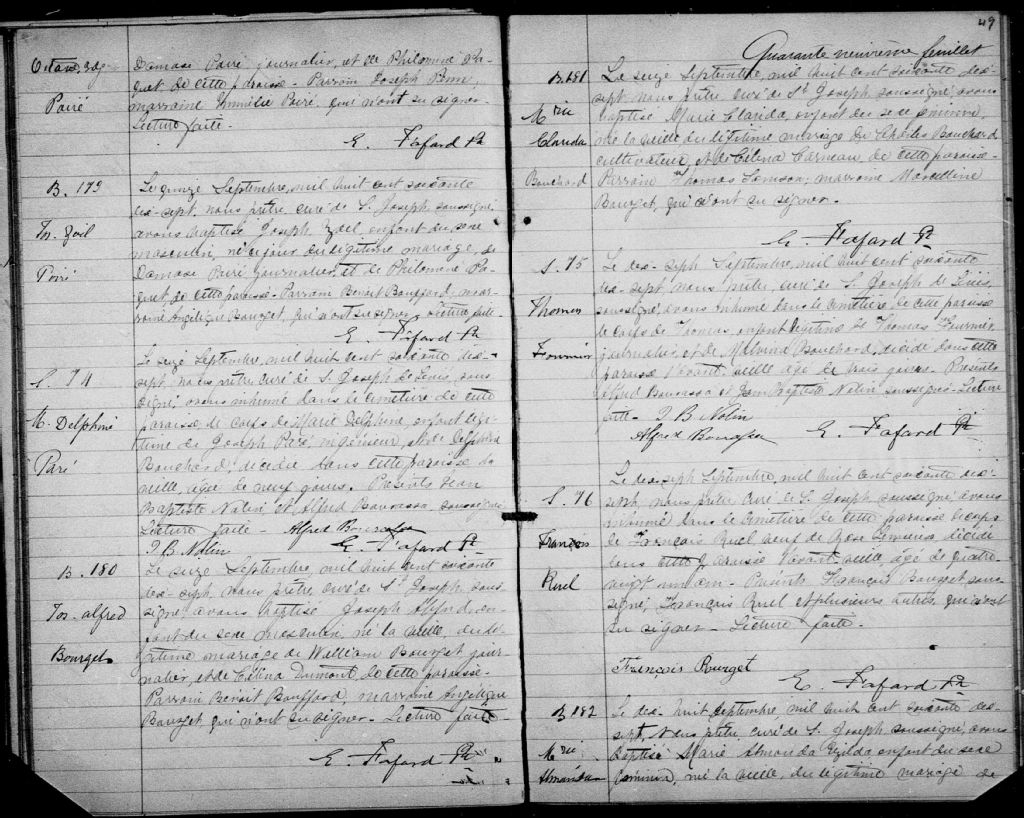 Octave, 3d
Poiré
Damase Poiré journalier, et de Philomène Pa-
quet de cette paroisse. Parrain Joseph
marraine Emmélie Poiré, qui n'ont su signer.
Lecture faite.
E. Fafard Ptr
B. 179
Jos. Zoil
Poiré
Le quinze Septembre, mil huit cent soixante
dix-sept, nous prêtre, curé de S. Joseph soussigné
avons baptisé Joseph Zoel enfant du sexe
masculin, né ce jour du légitime mariage de
Damase Poiré journalier, et de Philomène Pa-
quet, de cette paroisse. Parrain Benoit Bouffard, mar-
raine Angélique Bourget, qui n'ont su signer. Lecture faite
E. Fafard Ptr
S. 74
M. Delphine
Paré
Le seize Septembre, mil huit cent soixante dix-
sept, nous prêtre curé de S. Joseph de Lévis, sous-
signé, avons inhumé dans le cimetière de cette
paroisse le corps de Marie Delphine, enfant légi-
time de Joseph Paré ingénieur, et de
Bouchard, décédée dans cette paroisse la
veille, agée de neuf jours. Présents Jean
Baptiste Nolin et Alfred Bourassa soussignés.
Lecture faite - Alfred Bourassa
J B Nolin E. Fafard Ptr
B. 180
Jos. alfred
Bourget
Le seize Septembre, mil huit cent soixante
dix-sept, nous prêtre, curé de St Joseph, sous-
signé, avons baptisé Joseph Alfred, en-
fant du sexe masculin, né la veille, du lé-
gitime mariage de William Bourget jour-
nalier, et de Célina Dumont de cette paroisse.
Parrain Benoit Bouffard, marraine Angélique
Bourget, qui n'ont su signer. Lecture faite.
E. Fafard Ptr
49
Quarante neuvième feuillet
B. 181
M rie
Clarida
Bouchard
Le seize Septembre, mil huit cent soixante dix-
sept, nous prêtre, curé de St Joseph soussigné, avons
baptisé Marie Clarida, enfant du sexe féminin,
née la veille du légitime mariage de Charles Bouchard
cultivateur, et de Célina Carneau, de cette paroisse.
Parrain Thomas Samson; marraine Marcelline
Bourget, qui n'ont su signer.
E. Fafard Ptr
S. 75
Thomas
Fournier
Le dix-sept Septembre, mil huit cent soixante
dix-sept, nous prêtre, curé de S. Joseph de Lévis,
soussigné, avons inhumé dans le cimetière de cette paroisse
le corps de Thomas, enfant légitime de Thomas Fournier,
journalier, et de Malvina Bouchard, décédé dans cette
paroisse l'avant veille agé de trois jours. Présents
Alfred Bourassa et Jean Baptiste Nolin soussignés. Lecture
faite. J B Nolin
Alfred Bourassa E. Fafard Ptr
S. 76
François
Ruel
Le dix-sept Septembre, mil huit cent soixante dix-
sept, nous prêtre curé de S. Joseph soussigné, avons
inhumé dans le cimetière de cette paroisse le corps
de François Ruel veuf de décédé
dans cette paroisse l'avant veille, agé de quatre
vingt un ans. Présents François Bourget, sous-
signé, François Ruel et plusieurs autres qui n'ont
su signer. Lecture faite.
François Bourget
E. Fafard Ptr
B 182
M rie
Almanda
Le dix-huit Septembre, mil huit cent soixante dix-
sept, Nous prêtre curé de S. Joseph soussigné, avons
Baptisé Marie Almanda Exilda enfant du sexe
féminin, née la veille, du légitime mariage de